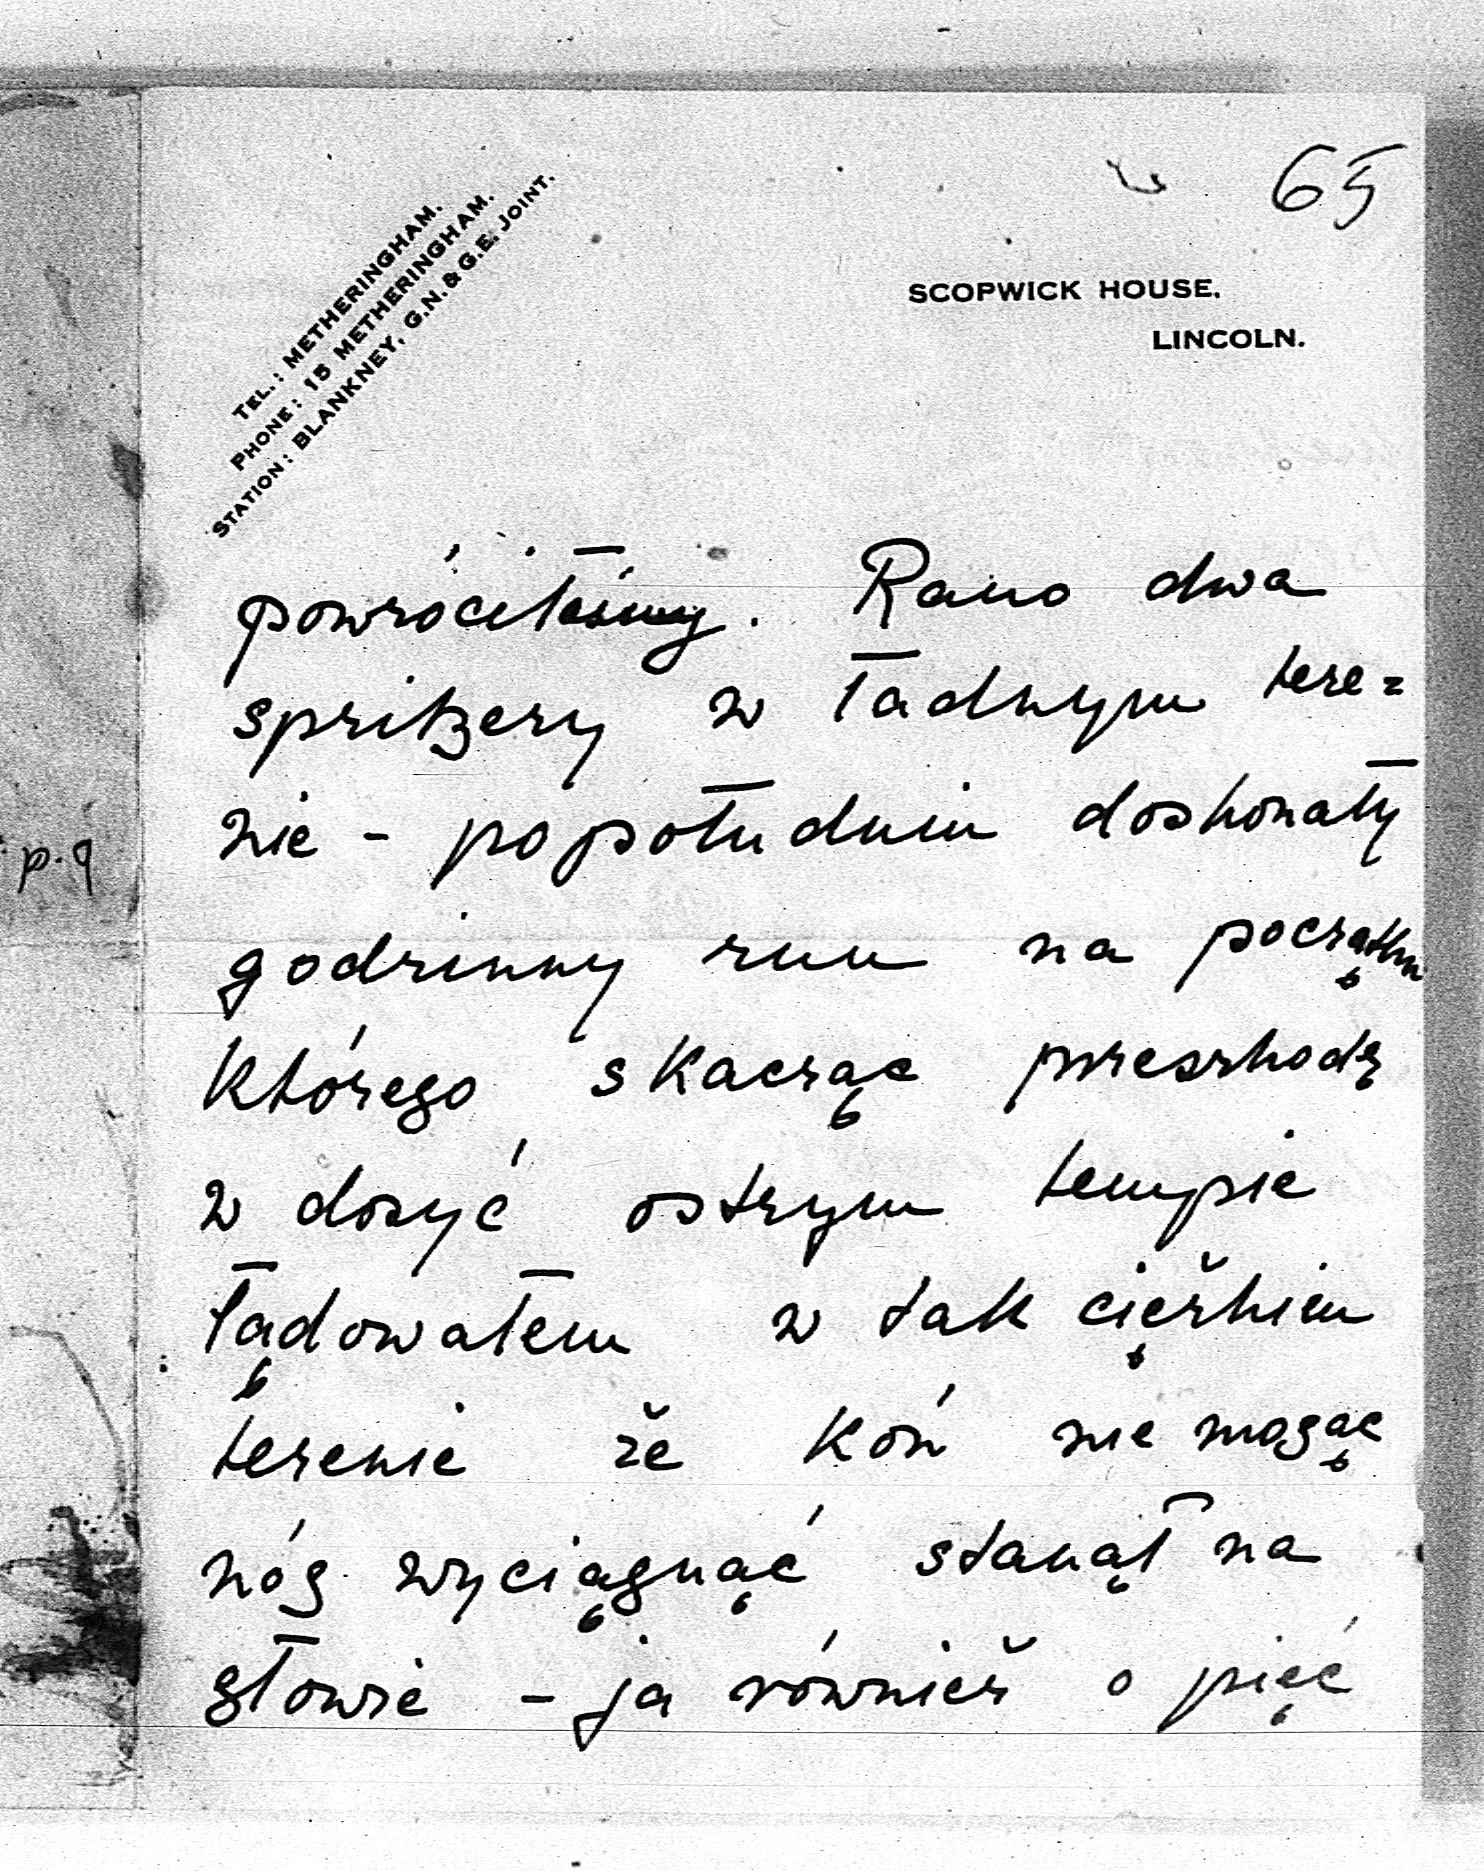 65
TEL.: METHERINGHAM.
PHONE: 15 METHERINGHAM.
STATION: BLANKNEY, G.N. & G.E. JOINT.
SCOPWICK HOUSE,
LINCOLN.
powróciliśmy. Rano dwa
spritzery w ładnym tere=
nie - popołudniu doskonały
godzinny run na początku
którego skacząc przeszkodę
w dosyć ostrym tempie
lądowałem w tak ciężkiem
terenie że koń nie mogąc
nóg wyciągnąć stanął na
głowie - ja również o pięć